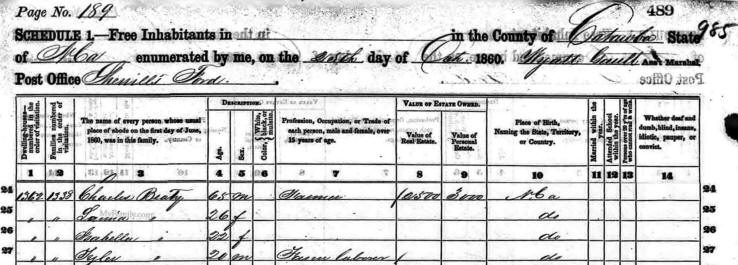 Page No. 189
489
985
SCHEDULE 1.—Free Inhabitants in in the County of Catawba State
of N Ca enumerated by me, on the day of Oct 1860. Wyatt Ass't Marshal.
Post Office Sherrills Ford.
Dwelling-houses—numbered in the order of visitation.
Families numbered in the order of visitation.
The name of every person whose usual place of abode on the first day of June, 1860, was in this family.
DESCRIPTION.
Age.
Sex.
Color, White, black, or mulatto.
Profession, Occupation, or Trade of each person, male and female, over 15 years of age.
VALUE OF ESTATE OWNED.
Value of Real Estate.
Value of Personal Estate.
Place of Birth, Naming the State, Territory, or Country.
Married within the year.
Attended School within the year.
Whether deaf and dumb, blind, insane, idiotic, pauper, or convict.
1 2 3 4 5 6 7 8 9 10 11 12 13 14
24 1362 1338 Charles Beaty 65 m Farmer 10500 3000 N Ca 24
25 " " " 26 f do 25
26 " " Isabella " 22 f do 26
27 " " Tyler " 20 m Farm laborer do 27